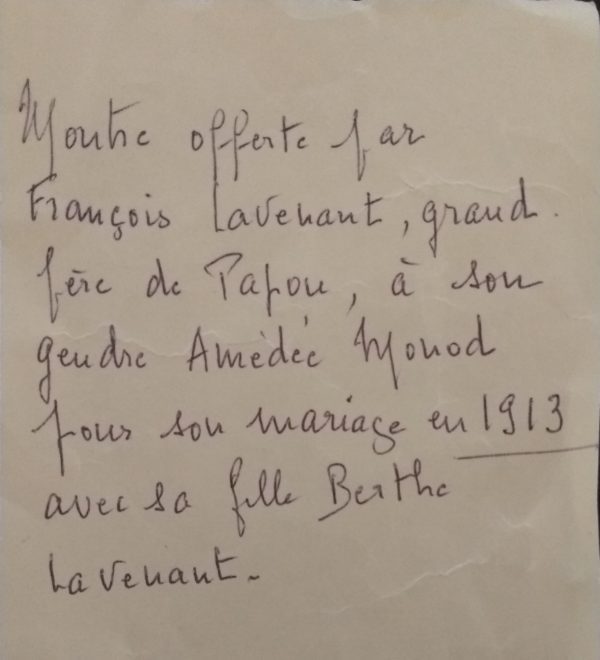 Montre offerte par
François Lavenant, grand.
père de Papou, à son
gendre Amédée Monod
pour son mariage en 1913
avec sa fille Berthe
Lavenant.